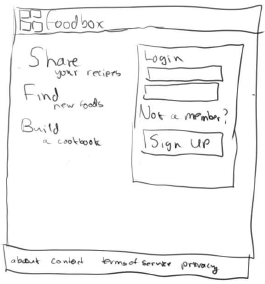 foodbox
Share
your recipes
Find
new foods
Build
a cookbook
Login
Not a member?
Sign UP
about contact terms of service privacy